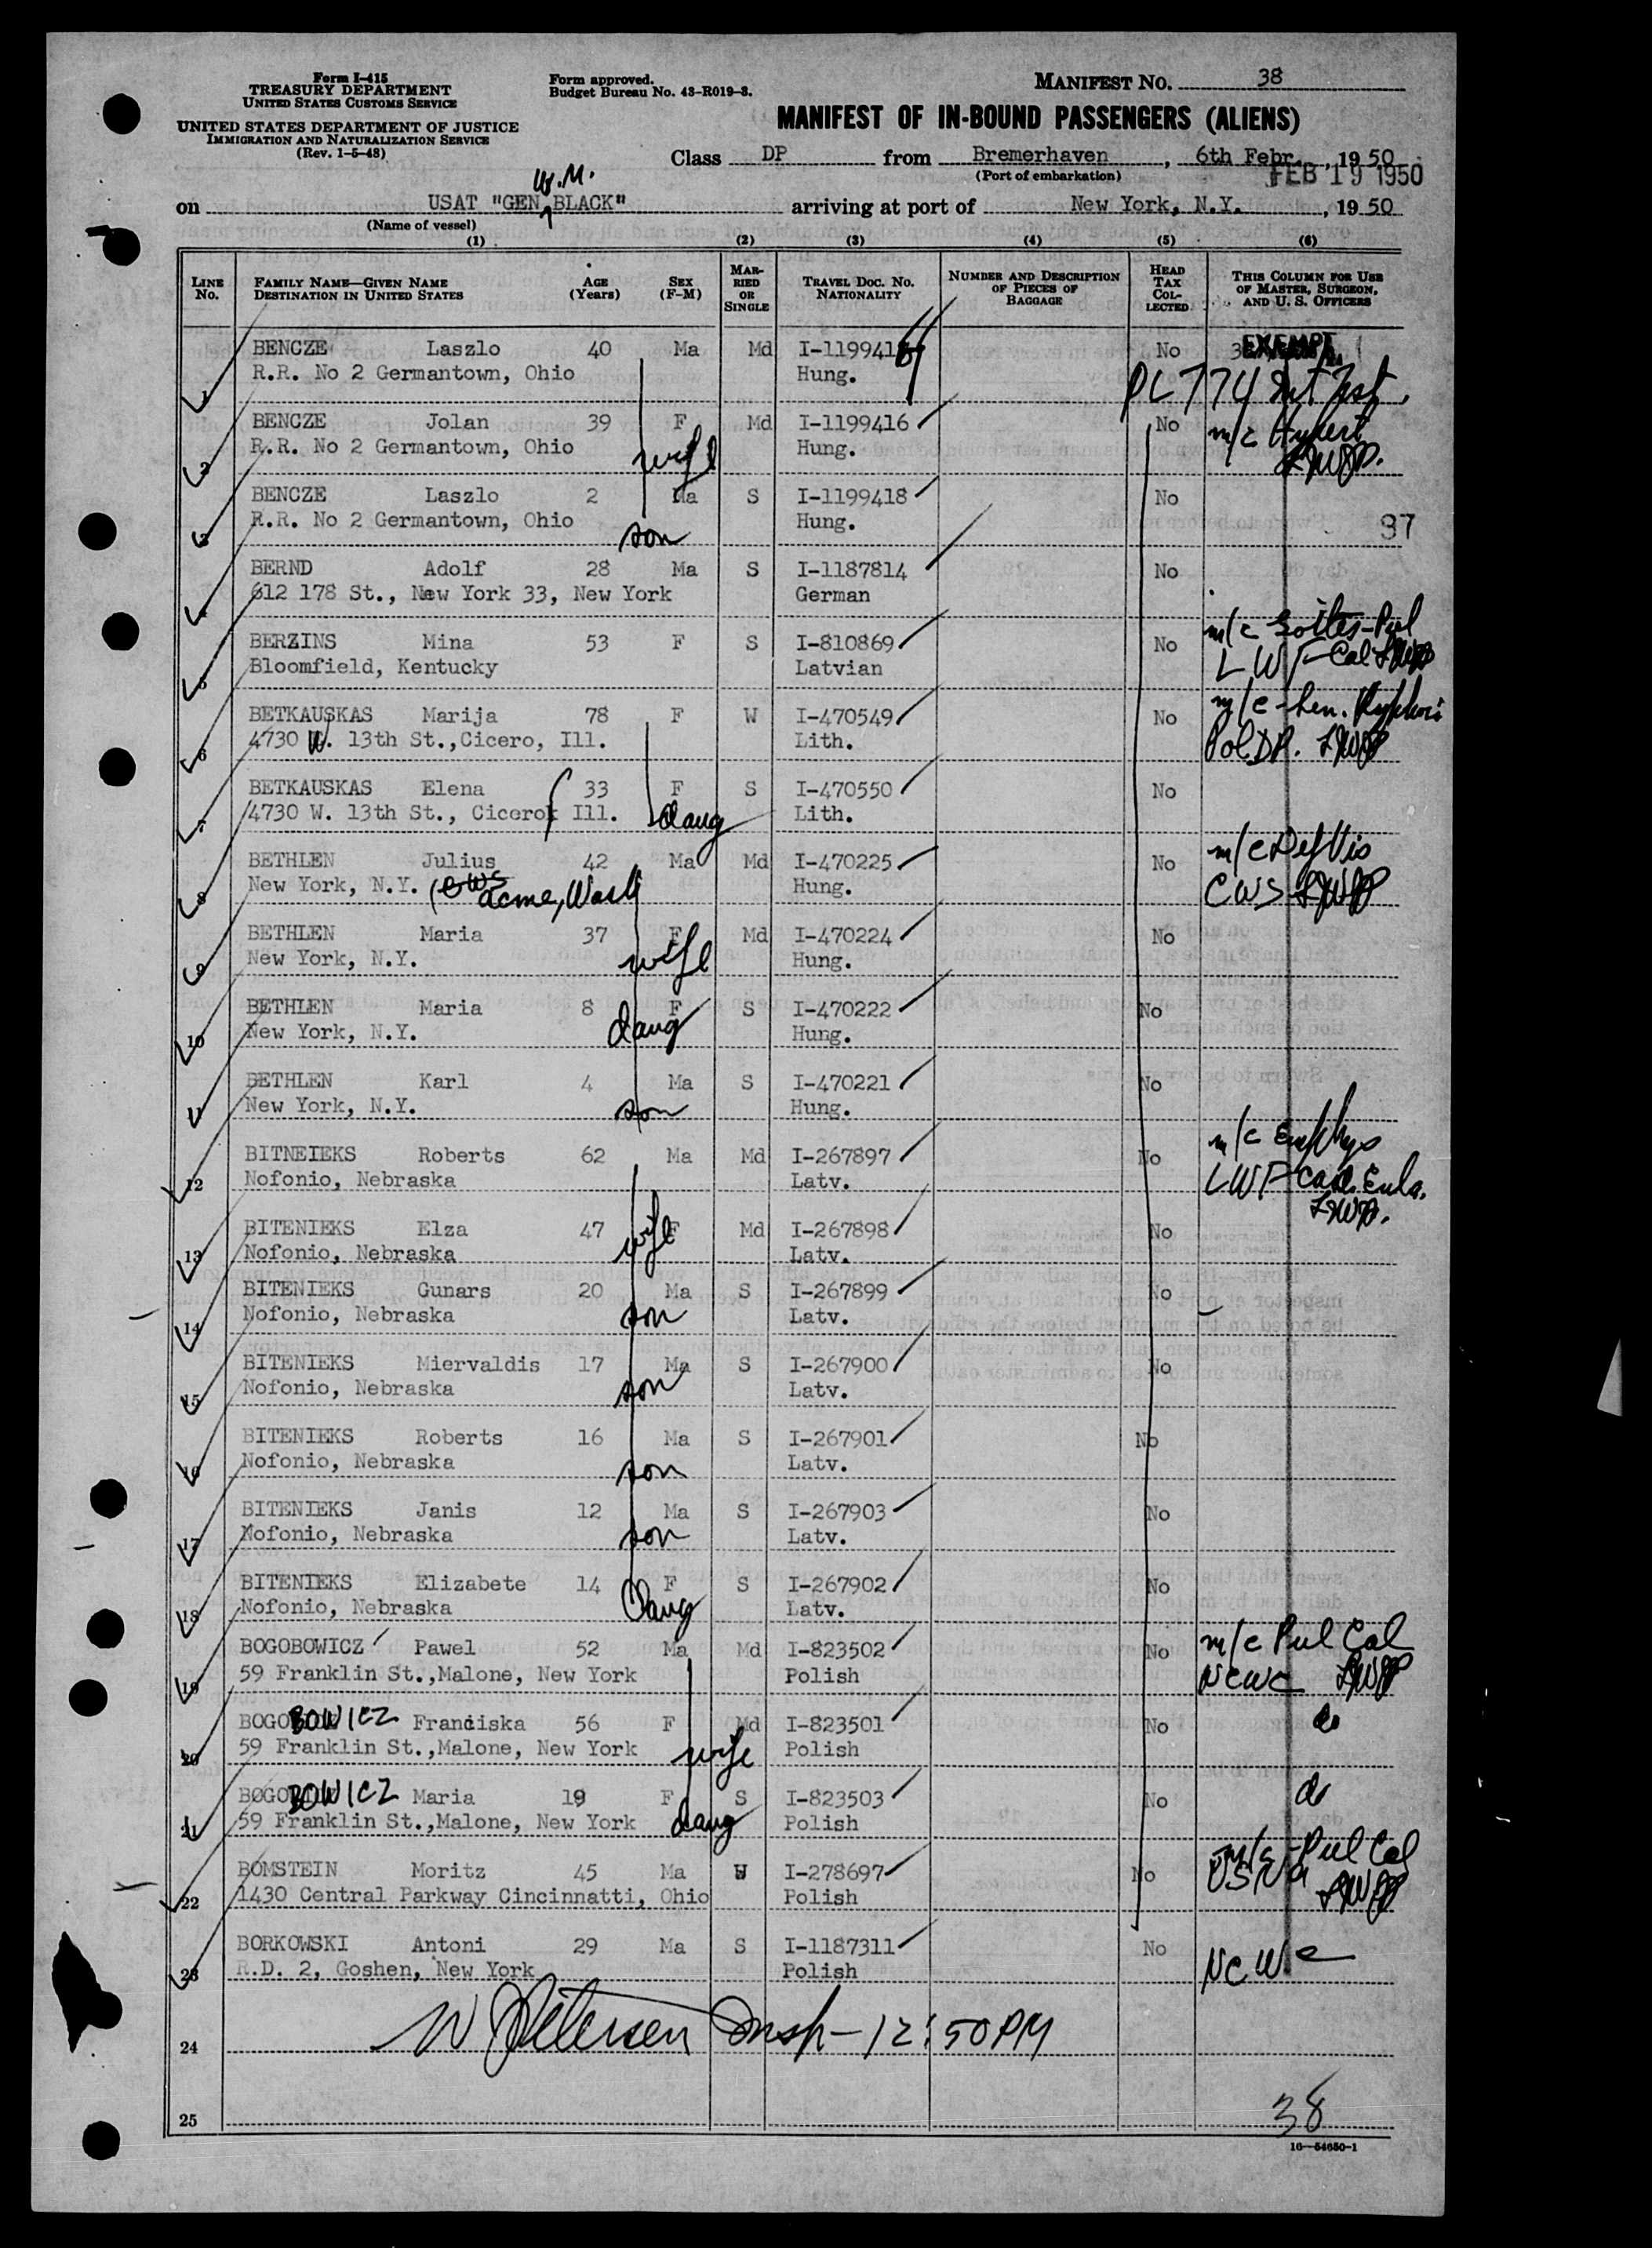 Form I-415
TREASURY DEPARTMENT
UNITED STATES CUSTOMS SERVICE
UNITED STATES DEPARTMENT OF JUSTICE
IMMIGRATION AND NATURALIZATION SERVICE
(Rev. 1-5-48)
Form approved.
Budget Bureau No. 43-R019-3.
MANIFEST NO. 38
MANIFEST OF IN-BOUND PASSENGERS (ALIENS)
Class DP from Bremerhaven, 6th Febr., 1950
(Port of embarkation)
FEB 19 1950
W.M.
on USAT "GEN BLACK" arriving at port of New York, N.Y., 1950
(Name of vessel)
(1) (2) (3) (4) (5) (6)
LINE No. FAMILY NAME—GIVEN NAME DESTINATION IN UNITED STATES AGE (Years) SEX (F-M) MARRIED OR SINGLE TRAVEL DOC. NO. NATIONALITY NUMBER AND DESCRIPTION OF PIECES OF BAGGAGE HEAD TAX COLLECTED THIS COLUMN FOR USE OF MASTER, SURGEON, AND U. S. OFFICERS
1 BENCZE Laszlo 40 Ma Md I-119941 No EXEMPT
R.R. No 2 Germantown, Ohio Hung. PL 774
2 BENCZE Jolan 39 F Md I-1199416 No m/c
R.R. No 2 Germantown, Ohio wife Hung.
3 BENCZE Laszlo 2 Ma S I-1199418 No
R.R. No 2 Germantown, Ohio son Hung. 97
4 BERND Adolf 28 Ma S I-1187814 No
612 178 St., New York 33, New York German
5 BERZINS Mina 53 F S I-810869 No m/c
Bloomfield, Kentucky Latvian LWF-Cal
6 BETKAUSKAS Marija 78 F W I-470549 No m/c
4730 W. 13th St.,Cicero, Ill. Lith.
7 BETKAUSKAS Elena 33 F S I-470550 No
4730 W. 13th St., Cicero Ill. daug Lith.
8 BETHLEN Julius 42 Ma Md I-470225 No m/c Def Vis
New York, N.Y. (CWS Acme, Wash Hung. CWS
9 BETHLEN Maria 37 F Md I-470224 No
New York, N.Y. wife Hung.
10 BETHLEN Maria 8 F S I-470222 No
New York, N.Y. daug Hung.
11 BETHLEN Karl 4 Ma S I-470221 No
New York, N.Y. son Hung.
12 BITNEIEKS Roberts 62 Ma Md I-267897 No m/c
Nofonio, Nebraska Latv. LWF
13 BITENIEKS Elza 47 F Md I-267898 No
Nofonio, Nebraska wife Latv.
14 BITENIEKS Gunars 20 Ma S I-267899 No
Nofonio, Nebraska son Latv.
15 BITENIEKS Miervaldis 17 Ma S I-267900 No
Nofonio, Nebraska son Latv.
16 BITENIEKS Roberts 16 Ma S I-267901 No
Nofonio, Nebraska son Latv.
17 BITENIEKS Janis 12 Ma S I-267903 No
Nofonio, Nebraska son Latv.
18 BITENIEKS Elizabete 14 F S I-267902 No
Nofonio, Nebraska Daug Latv.
19 BOGOBOWICZ Pawel 52 Ma Md I-823502 No m/c Pul Cal
59 Franklin St.,Malone, New York Polish NCWC
20 BOGOBOWICZ Franciska 56 F Md I-823501 No do
59 Franklin St.,Malone, New York wife Polish
21 BOGOBOWICZ Maria 19 F S I-823503 No do
59 Franklin St.,Malone, New York daug Polish
22 BOMSTEIN Moritz 45 Ma W I-278697 No m/c-Pul Cal
1430 Central Parkway Cincinnatti, Ohio Polish USNA
23 BORKOWSKI Antoni 29 Ma S I-1187311 No NCWC
R.D. 2, Goshen, New York Polish
24 W Petersen Insp-12:50PM
25
38
16—54650-1